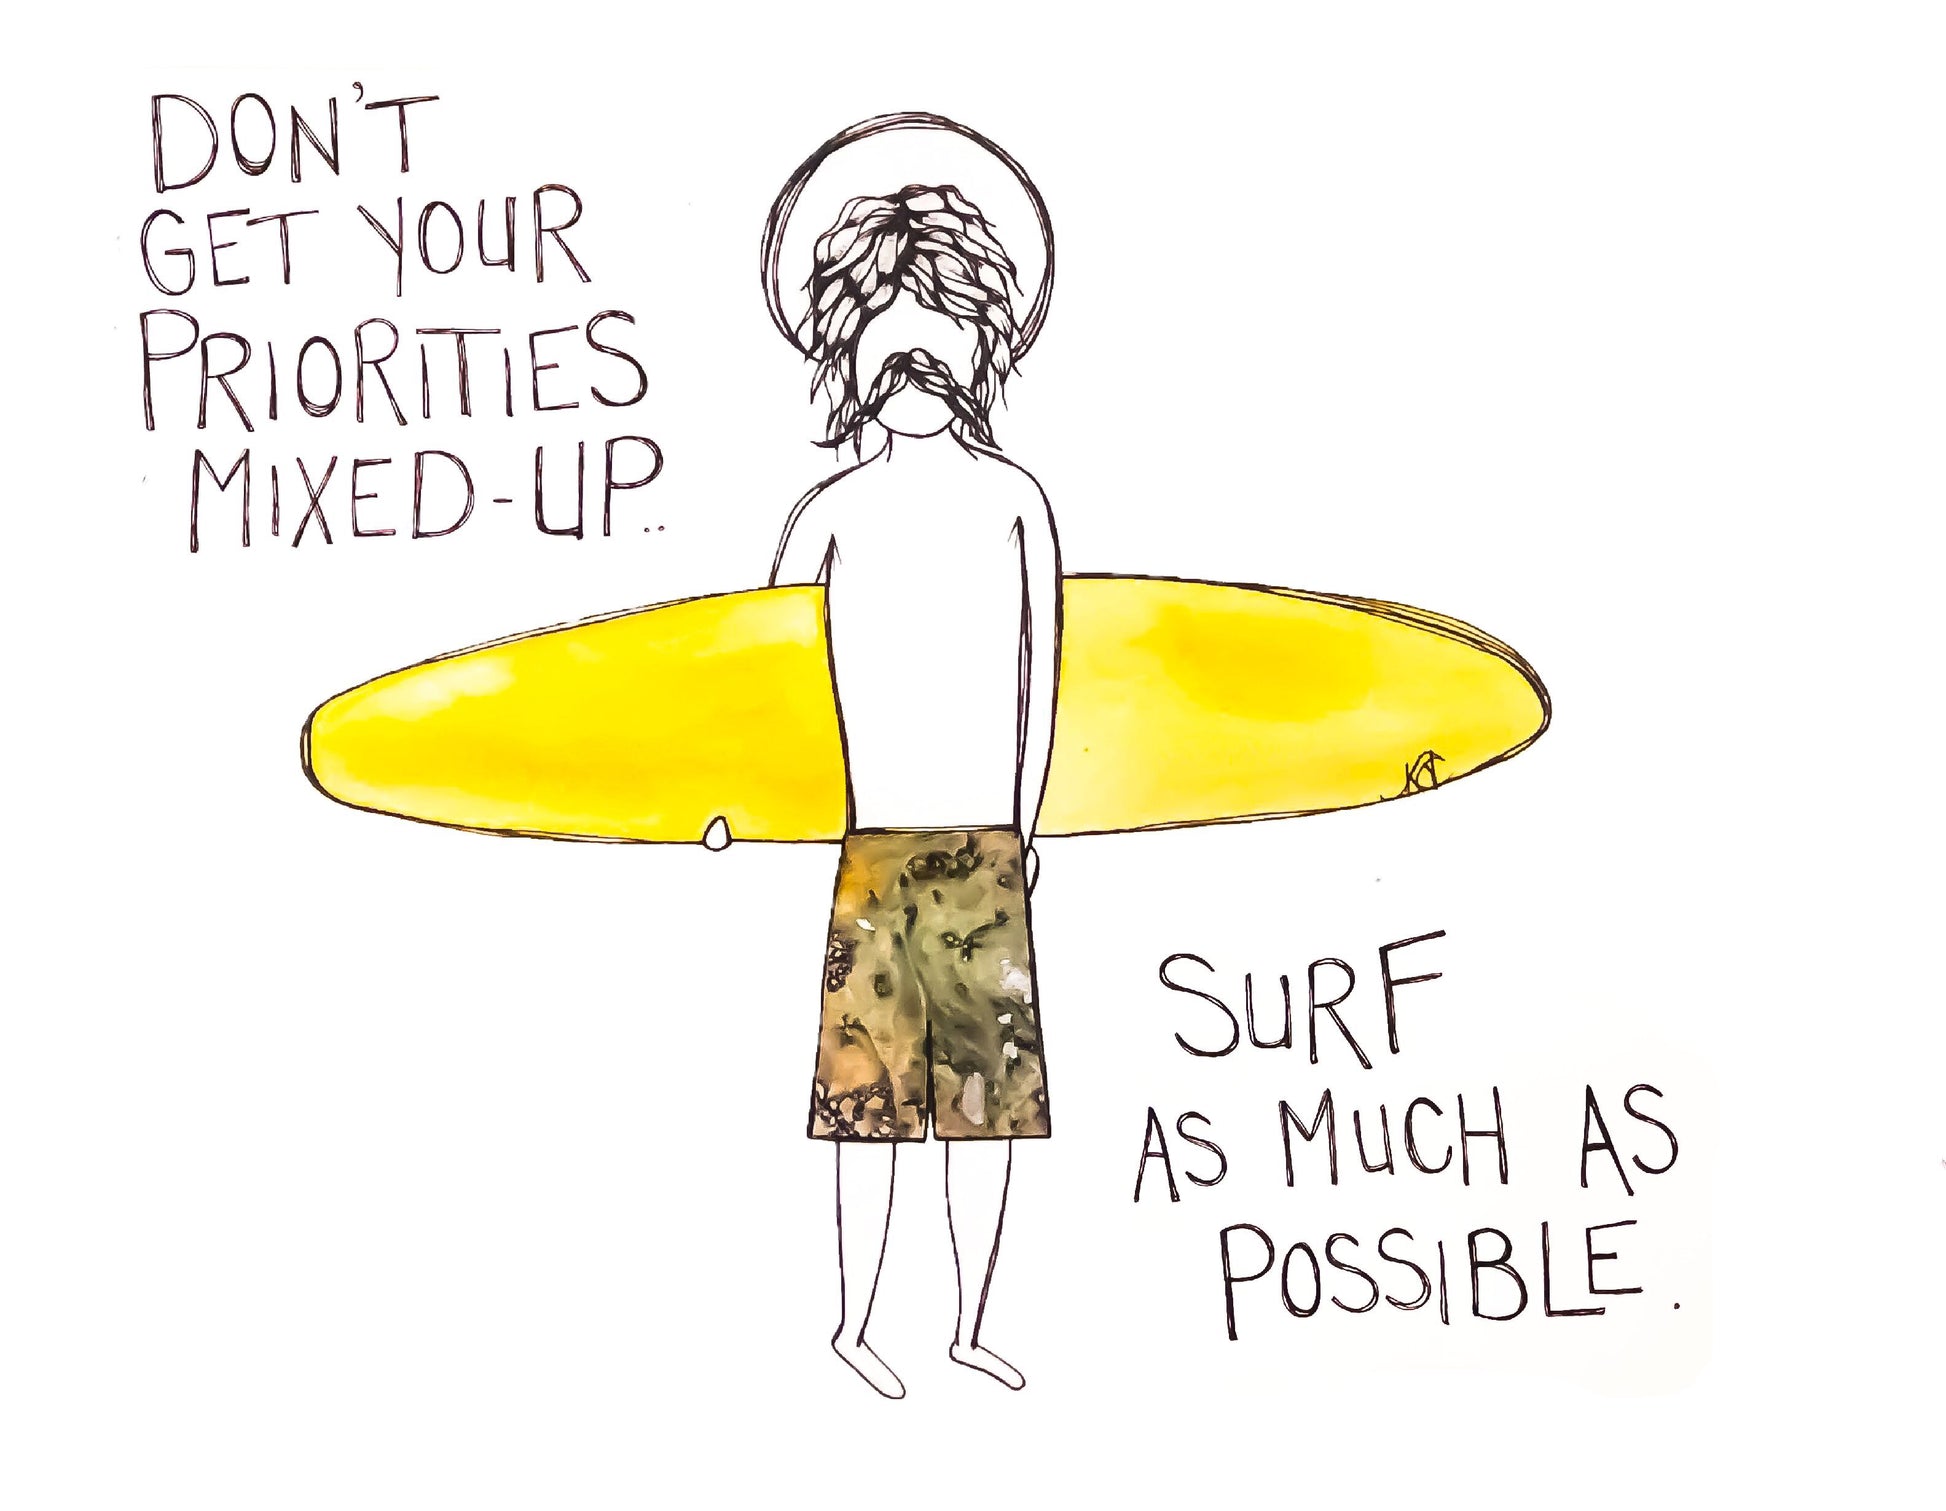 DON'T
GET YOUR
PRIORITIES
MIXED-UP..
SURF
AS MUCH AS
POSSIBLE.